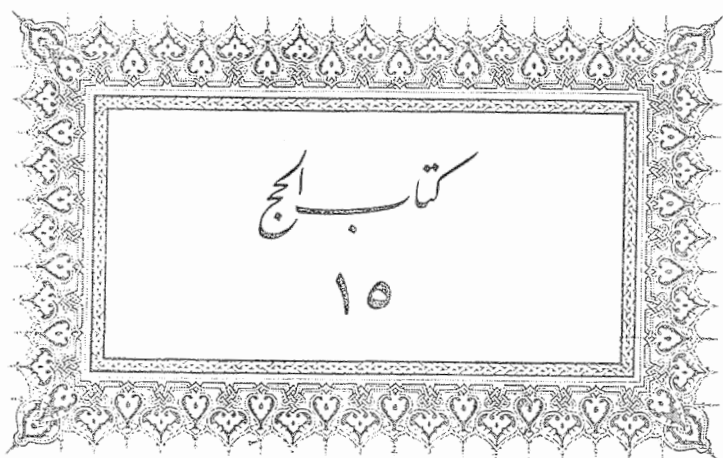 كتاب الحج
١٥